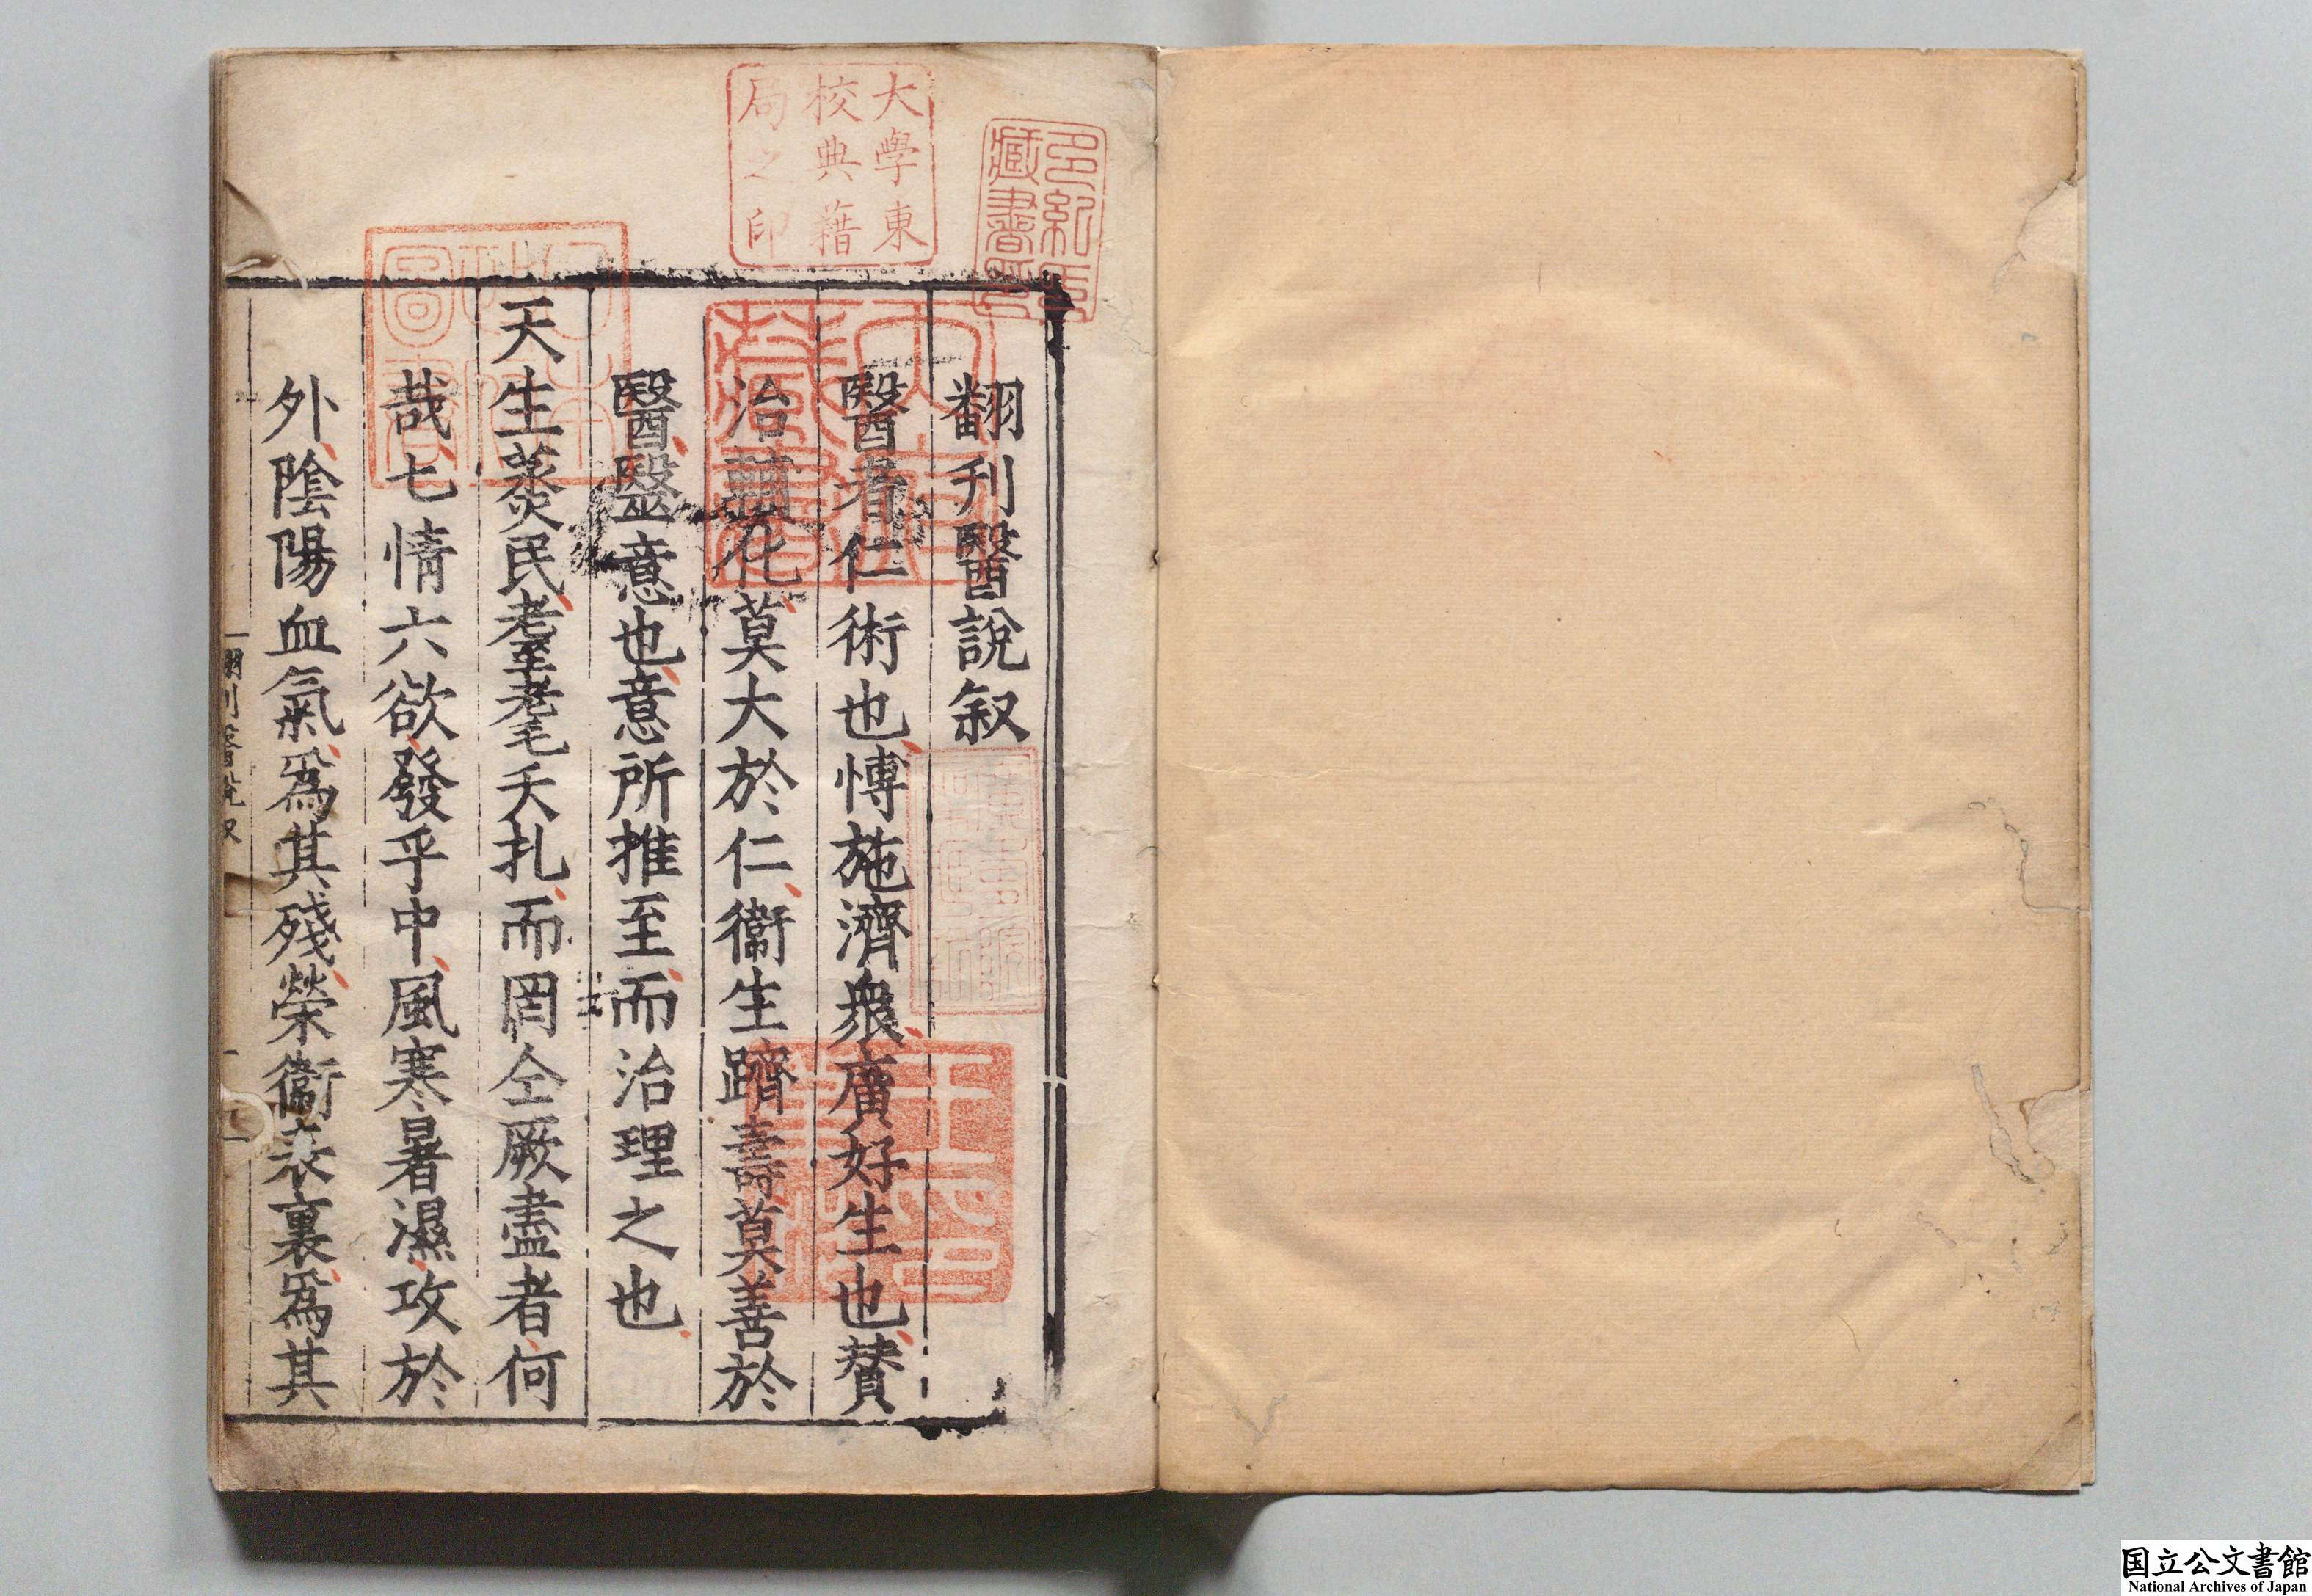 翻刋醫說叙
醫者仁術也愽施濟衆廣好生也賛
治化莫大於仁衞生躋壽莫善於
醫毉意也意所推至而治理之也
天生蒸民耄耋夭扎而罔仝厥盡者何
哉七情六欲發乎中風寒暑濕攻於
外陰陽血氣爲其殘榮衞表裏爲其
大學東
校典藉
局之印
多紀氏
藏書印
国立公文書館
National Archives of Japan